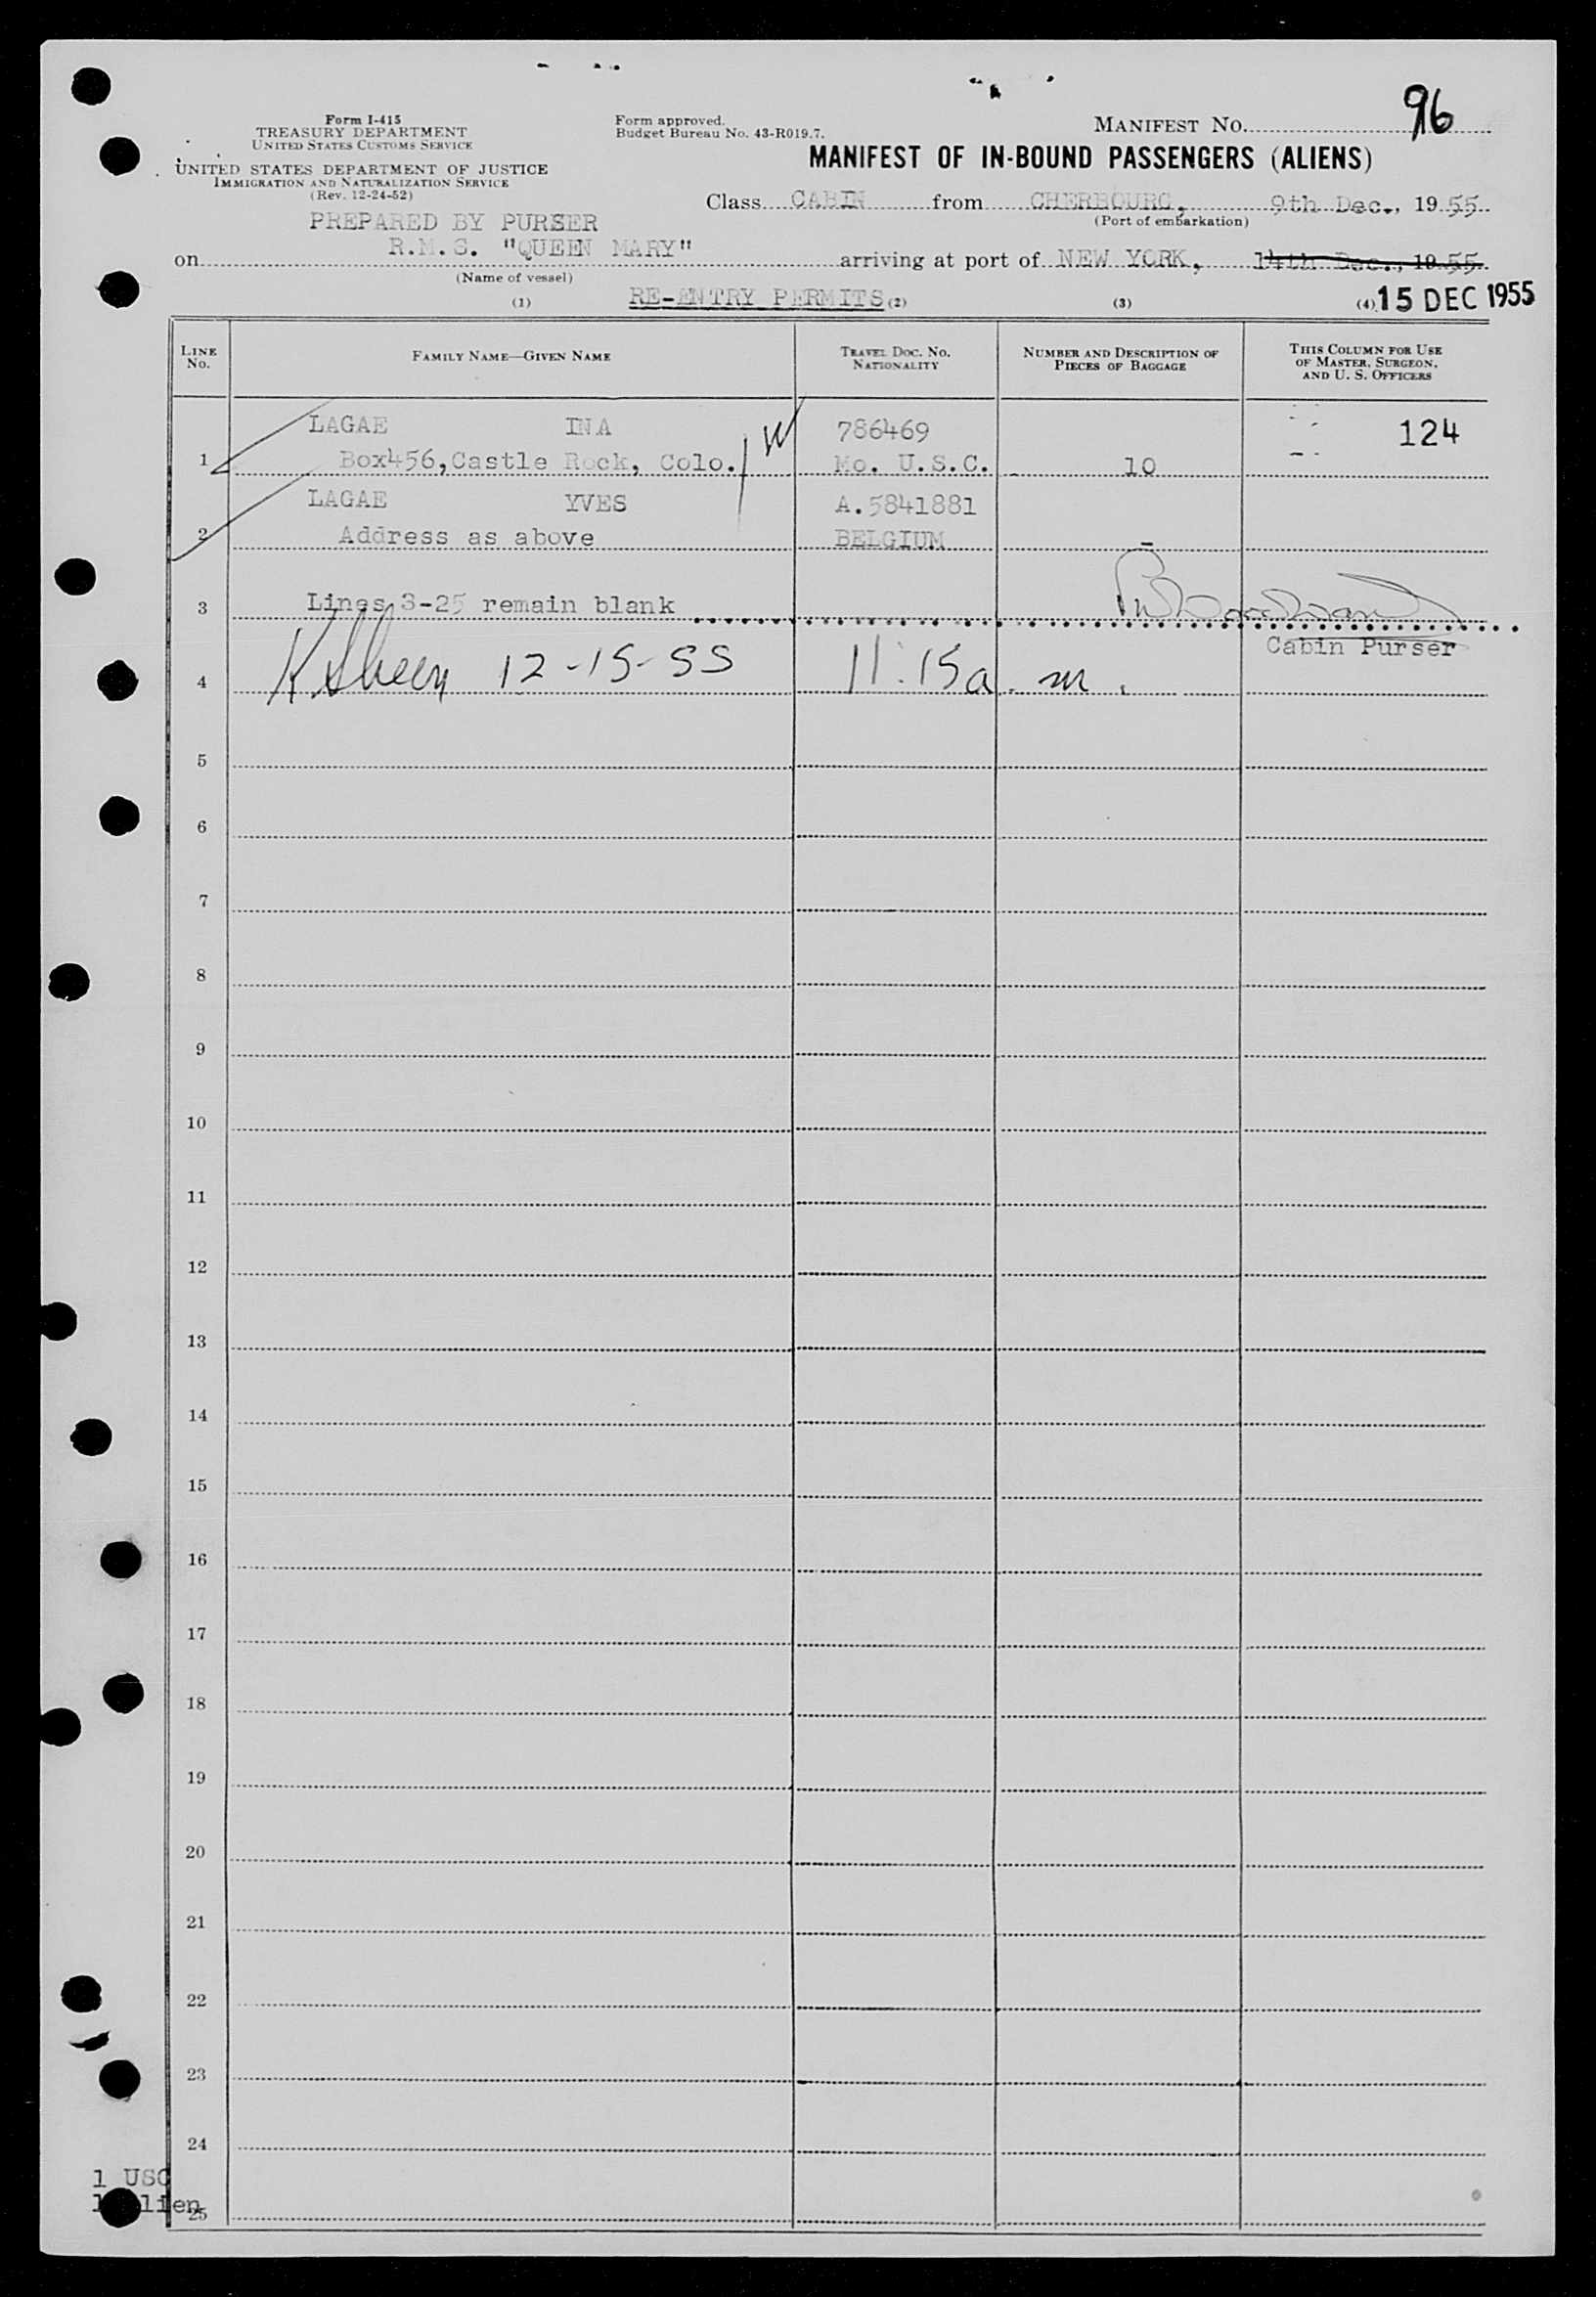 96
Form I-415
TREASURY DEPARTMENT
UNITED STATES CUSTOMS SERVICE
UNITED STATES DEPARTMENT OF JUSTICE
IMMIGRATION AND NATURALIZATION SERVICE
(Rev. 12-24-52)
Form approved.
Budget Bureau No. 43-R019.7.
MANIFEST NO.
MANIFEST OF IN-BOUND PASSENGERS (ALIENS)
Class CABIN from CHERBOURG, 9th Dec., 1955
(Port of embarkation)
PREPARED BY PURSER
on R.M.S. "QUEEN MARY" arriving at port of NEW YORK, 14th Dec., 1955
(Name of vessel)
(1) RE-ENTRY PERMITS (2) (3) (4) 15 DEC 1955
LINE NO. FAMILY NAME—GIVEN NAME TRAVEL DOC. NO. NATIONALITY NUMBER AND DESCRIPTION OF PIECES OF BAGGAGE THIS COLUMN FOR USE OF MASTER, SURGEON, AND U. S. OFFICERS
LAGAE INA 786469 124
1 Box456, Castle Rock, Colo. Mo. U.S.C. 10
LAGAE YVES A.5841881
2 Address as above BELGIUM -
3 Lines 3-25 remain blank
Cabin Purser
4 12-15-55 11:15 a.m.
5
6
7
8
9
10
11
12
13
14
15
16
17
18
19
20
21
22
23
24
1 USC
25